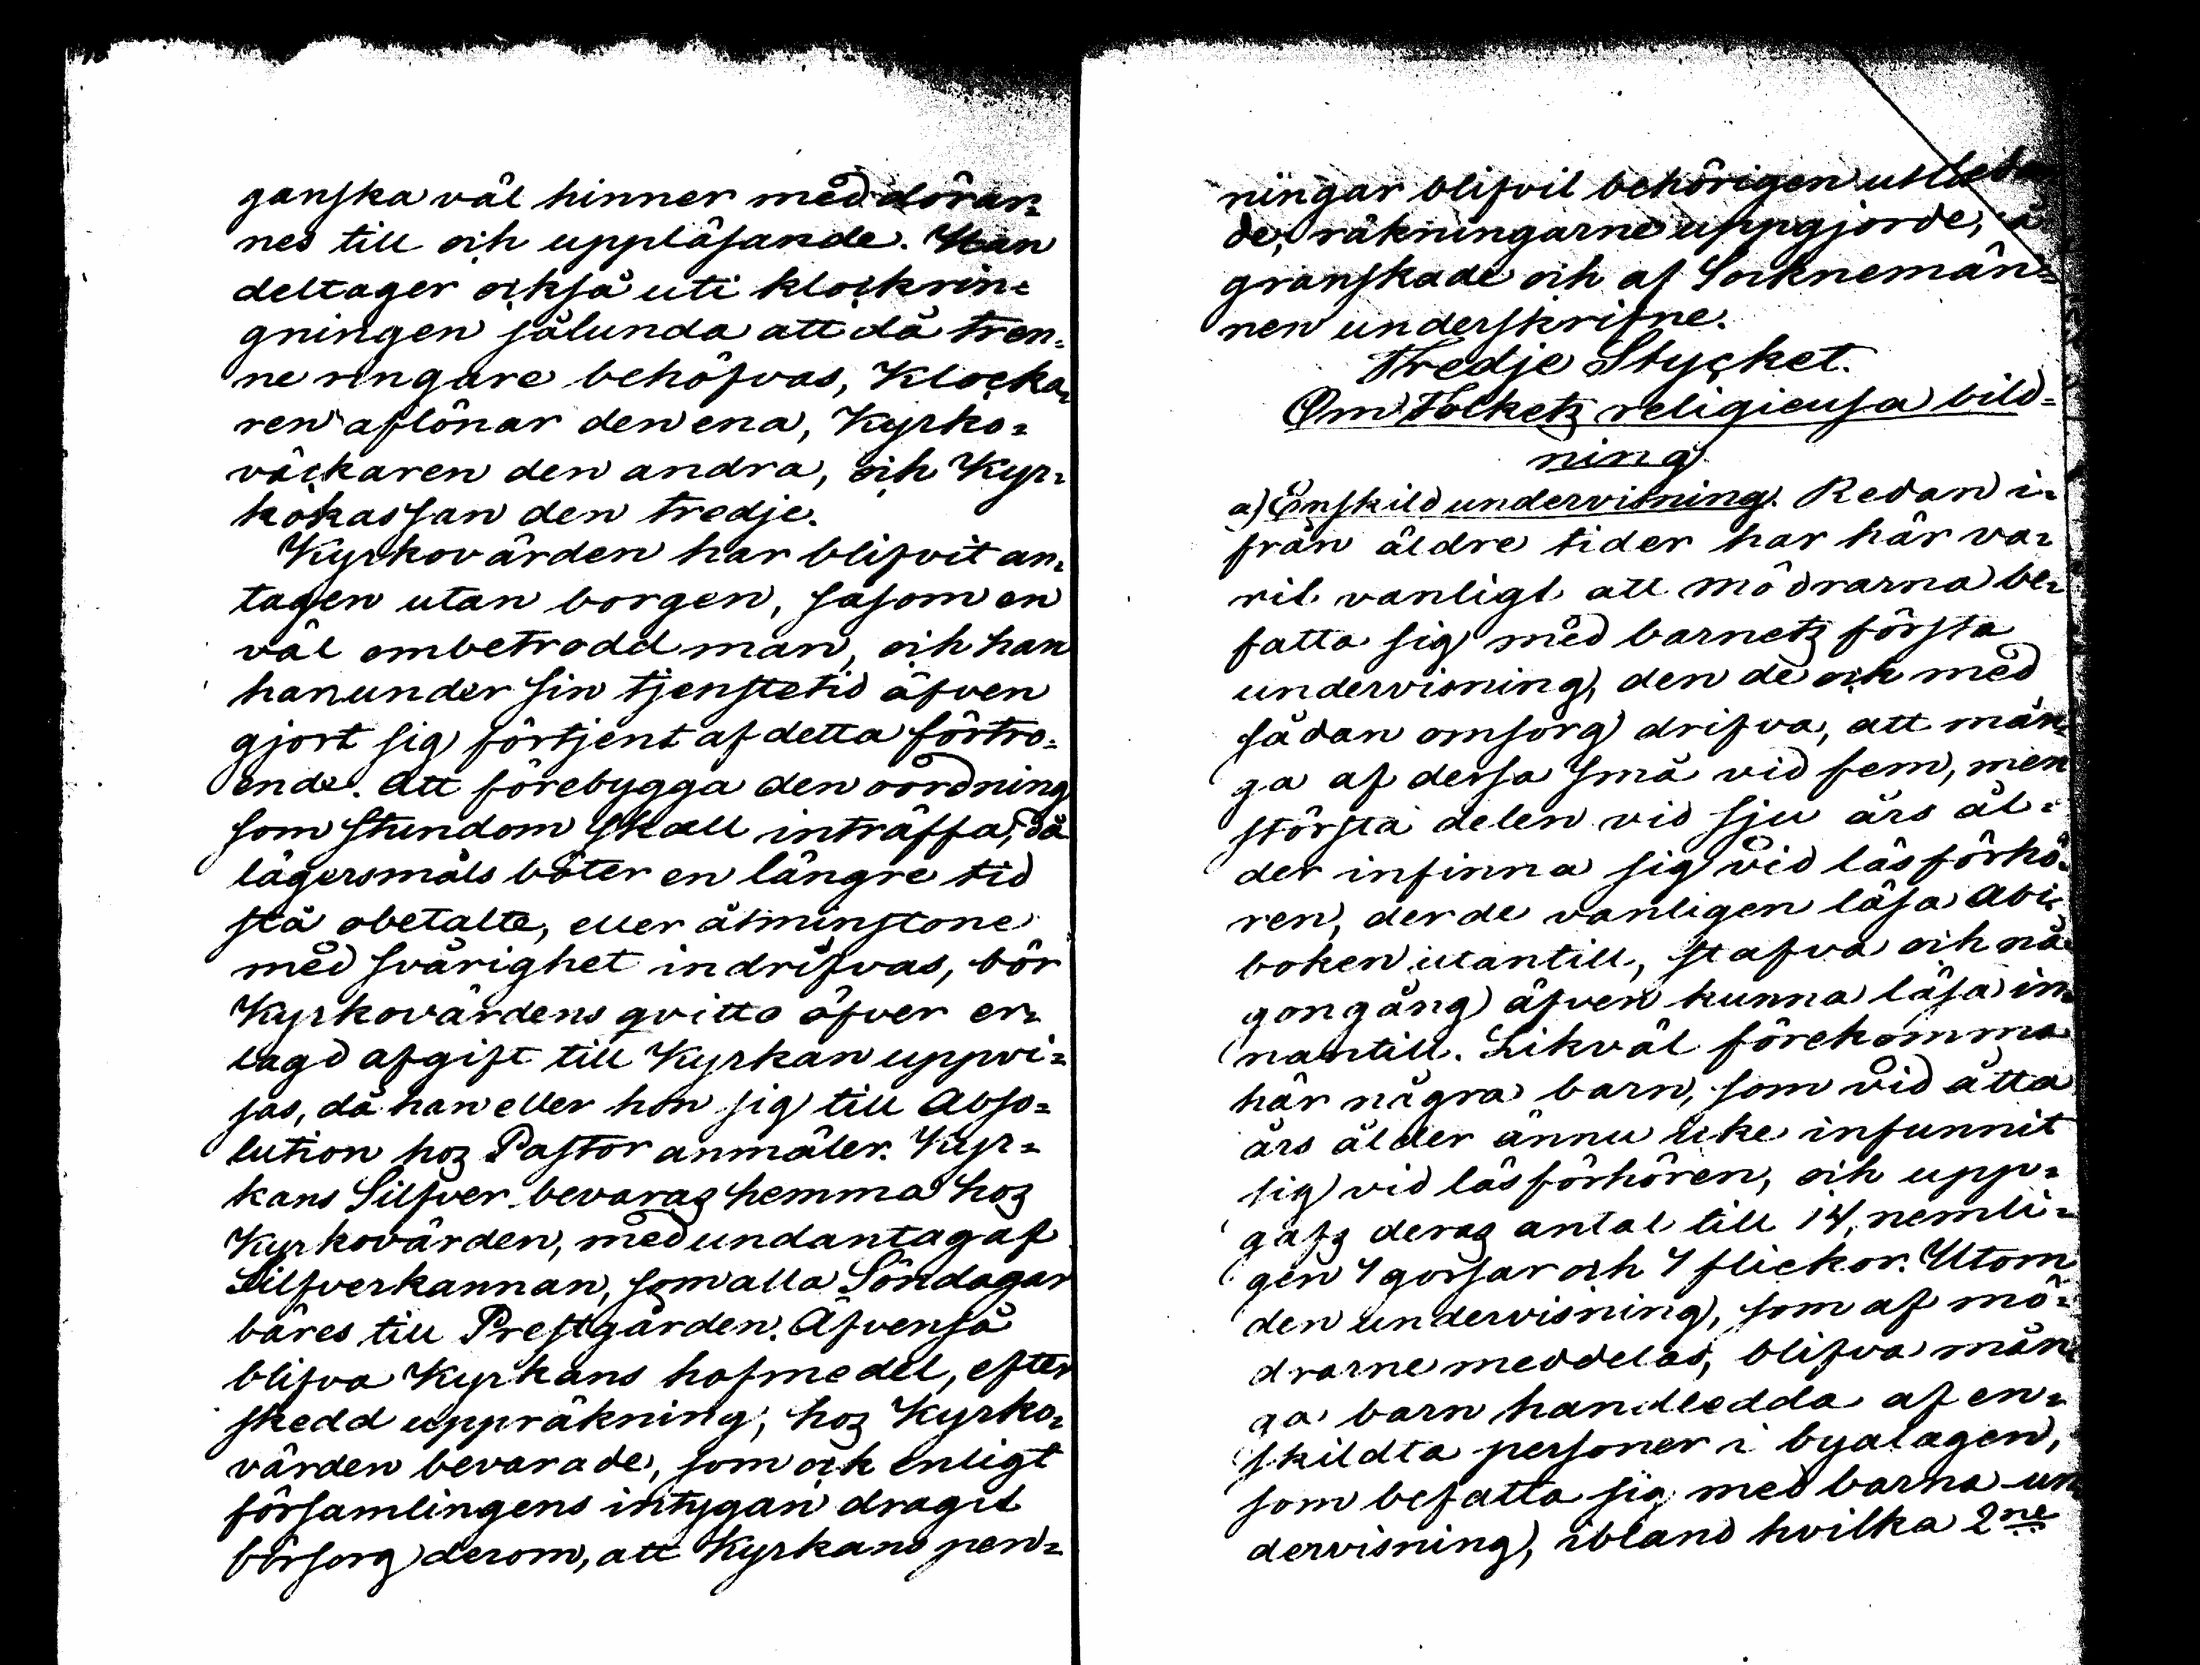 ganska väl hinner med dörar=
nes till och uppläsande. Han
deltager också uti klockrin=
gningen sålunda att då tren=
ne ringare behöfvas, Klocka=
ren aflönar den ena, Kyrko=
väckaren den andra, och Kyr=
kokassan den tredje.
Kyrkovärden har blifvit an=
tagen utan borgen, såsom en
väl ombetrodd man, och han
har under sin tjenstetid äfven
gjort sig förtjent af detta förtro=
ende. Att förebygga den oordning
som stundom skall inträffa, då
lägersmåls böter en längre tid
stå obetalte, eller åtminstone
med svårighet indrifvas, bör
Kyrkovärdens qvitto öfver er=
lagd afgift till Kyrkan uppvi=
sas, då han eller hon sig till Abso=
lution hoz Pastor anmäler. Kyr=
kans Silfver bevaraz hemma hoz
Kyrkovärden, med undantag af
Silfverkannan, som alla Söndagar
bäres till Prestgården. Äfvenså
blifva Kyrkans hafmedel, efter
skedd uppräkning, hoz Kyrko=
värden bevarade, som ock enligt
församlingens intygan dragit
försorg derom, att Kyrkans pen=
ningar blifvit behörigen
de, räkningarne uppgjorde,
granskade och af Socknemän=
nen underskrifne.
Tredje Stycket.
Om Folketz religieusa bild=
ning
a) Enskild undervisning. Redan i=
från äldre tider har här va=
rit vanligt att mödrarna be=
fatta sig med barnetz första
undervisning, den de ock med
sådan omsorg drifva, att mån=
ga af dessa små vid fem, men
största delen vid sju års ål=
der infinna sig vid läsförhö=
ren, der de vanligen läsa Abc=
boken utantill, stafva och nå=
gon gång äfven kunna läsa in=
nantill. Likväl förekomma
här några barn, som vid åtta
års ålder ännu icke infunnit
sig vid läsförhören, och upp=
gafz deraz antal till 14, nemli=
gen 7 gossar och 7 flickor. Utom
den undervisning, som af mö=
drarne meddelas, blifva mån=
ga barn handledda af en=
skildta personer i byalagen,
som befatta sig med barna un
dervisning, ibland hvilka 2ne